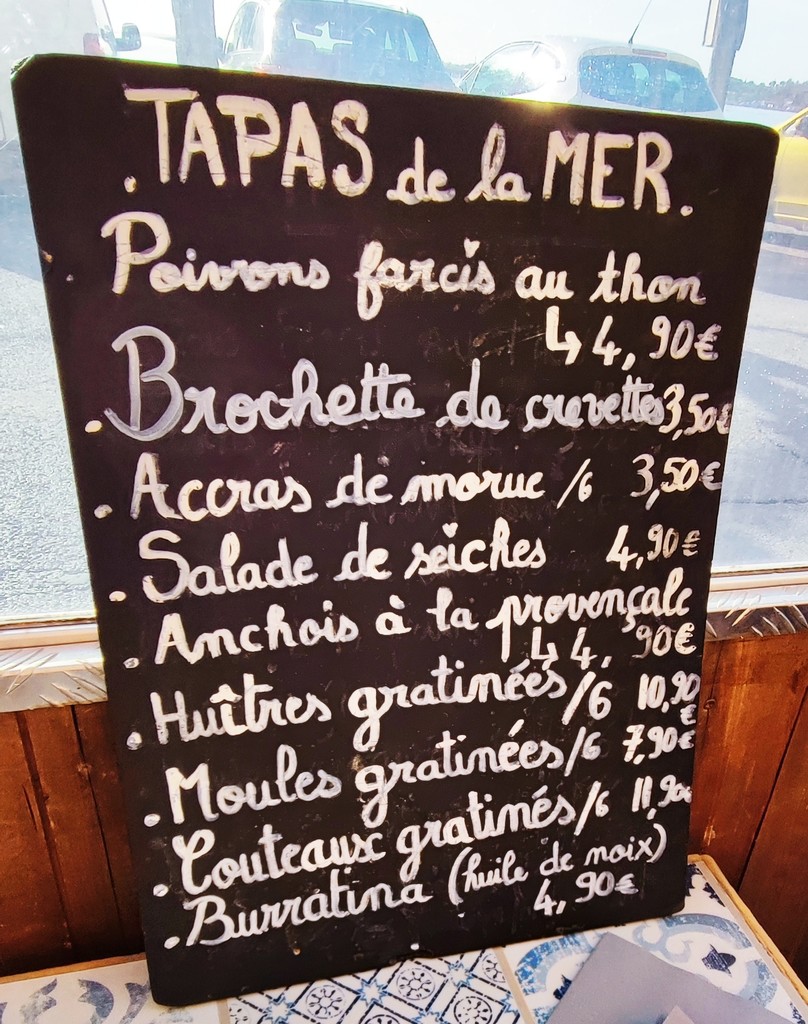 . TAPAS de la MER.
Poivrons farcis au thon
↳ 4,90€
. Brochette de crevettes 3,50€
. Accras de morue /6 3,50€
. Salade de seiches 4,90€
. Anchois à la provençale
↳ 4,90€
. Huîtres gratinées /6 10,90€
. Moules gratinées /6 7,90€
. Couteaux gratinés /6 11,90€
. Burratina (huile de noix)
4,90€